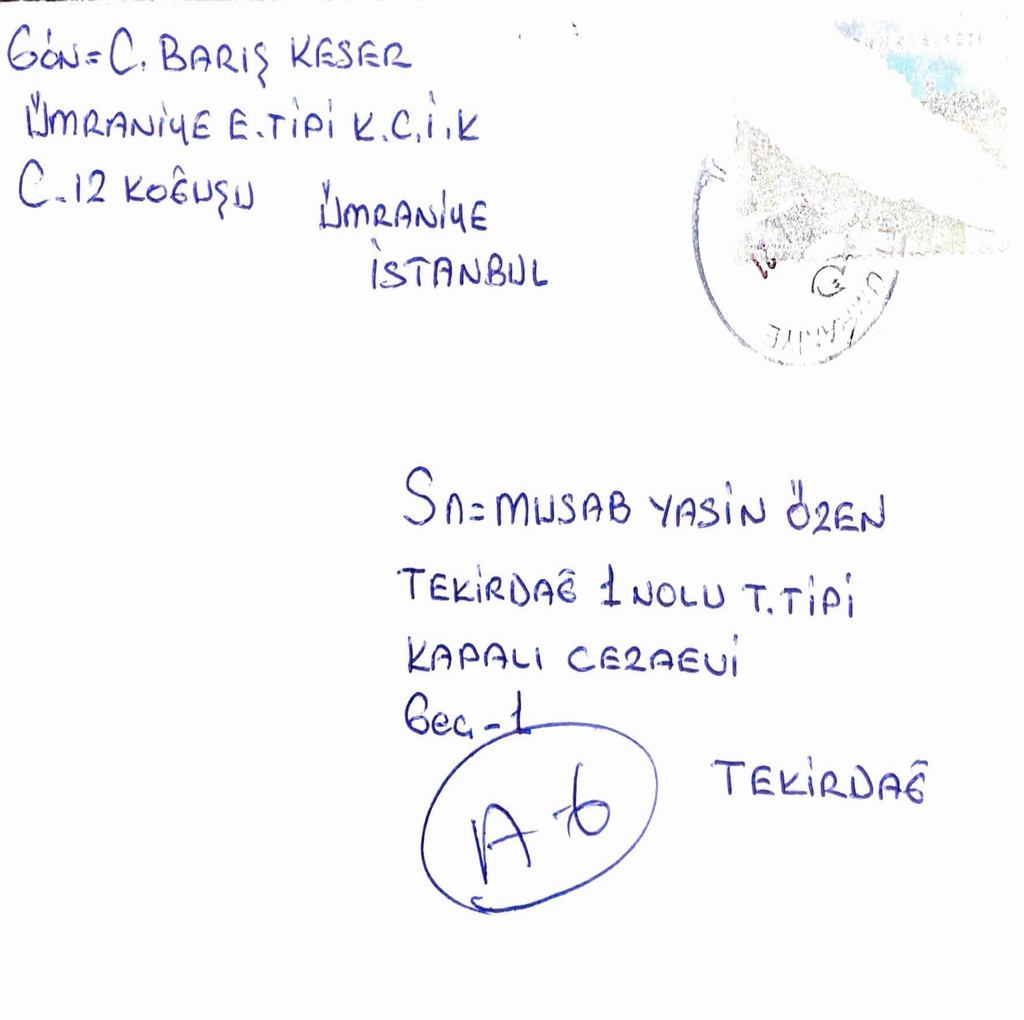 GÖN=C. BARIŞ KESER
ÜMRANİYE E.TİPİ K.C.İ.K
C-12 KOĞUŞU
ÜMRANİYE
İSTANBUL
ÜMRANİYE
Sn=MUSAB YASİN ÖZEN
TEKİRDAĞ 1 NOLU T.TİPİ
KAPALI CEZAEVİ
Geç-1
A-6
TEKİRDAĞ